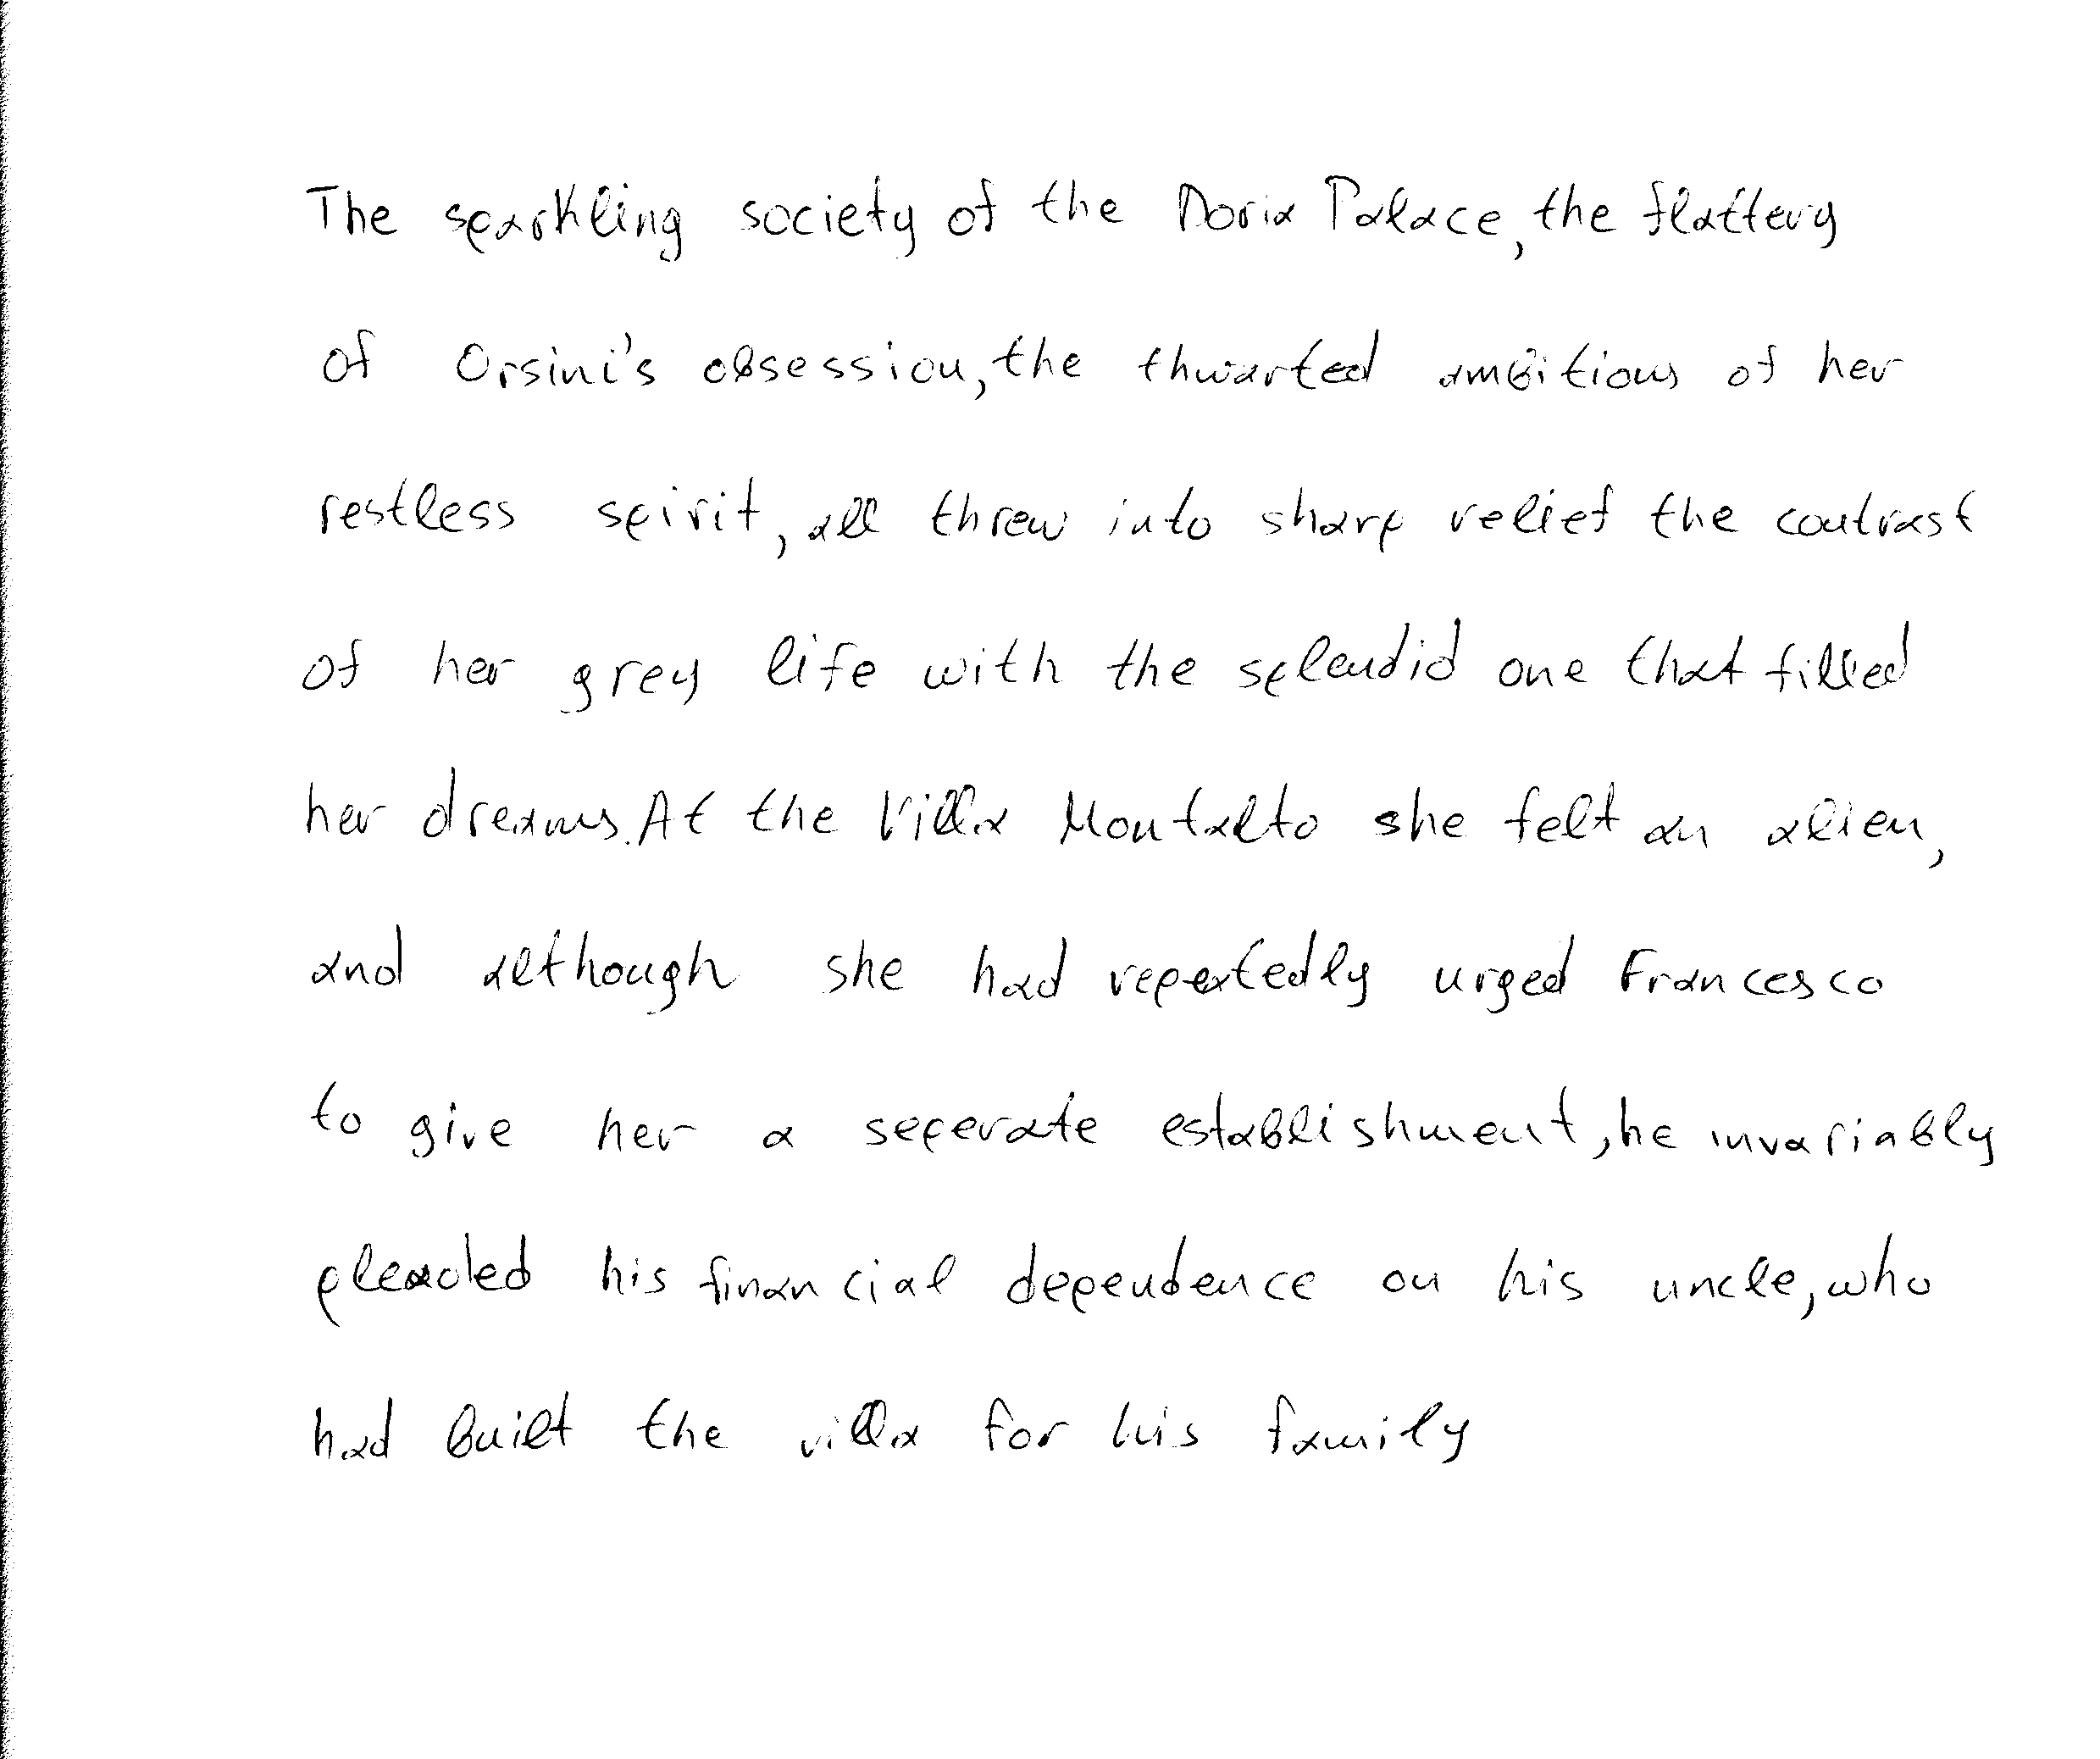 The sparkling society of the Doria Palace, the flattery
of Orsini's obsession, the thwarted ambitions of her
restless spirit, all threw into sharp relief the contrast
of her grey life with the splendid one that filled
her dreams. At the Villa Montalto she felt an alien,
and although she had repeatedly urged Francesco
to give her a seperate establishment, he invariably
pleaded his financial dependence on his uncle, who
had built the villa for his family